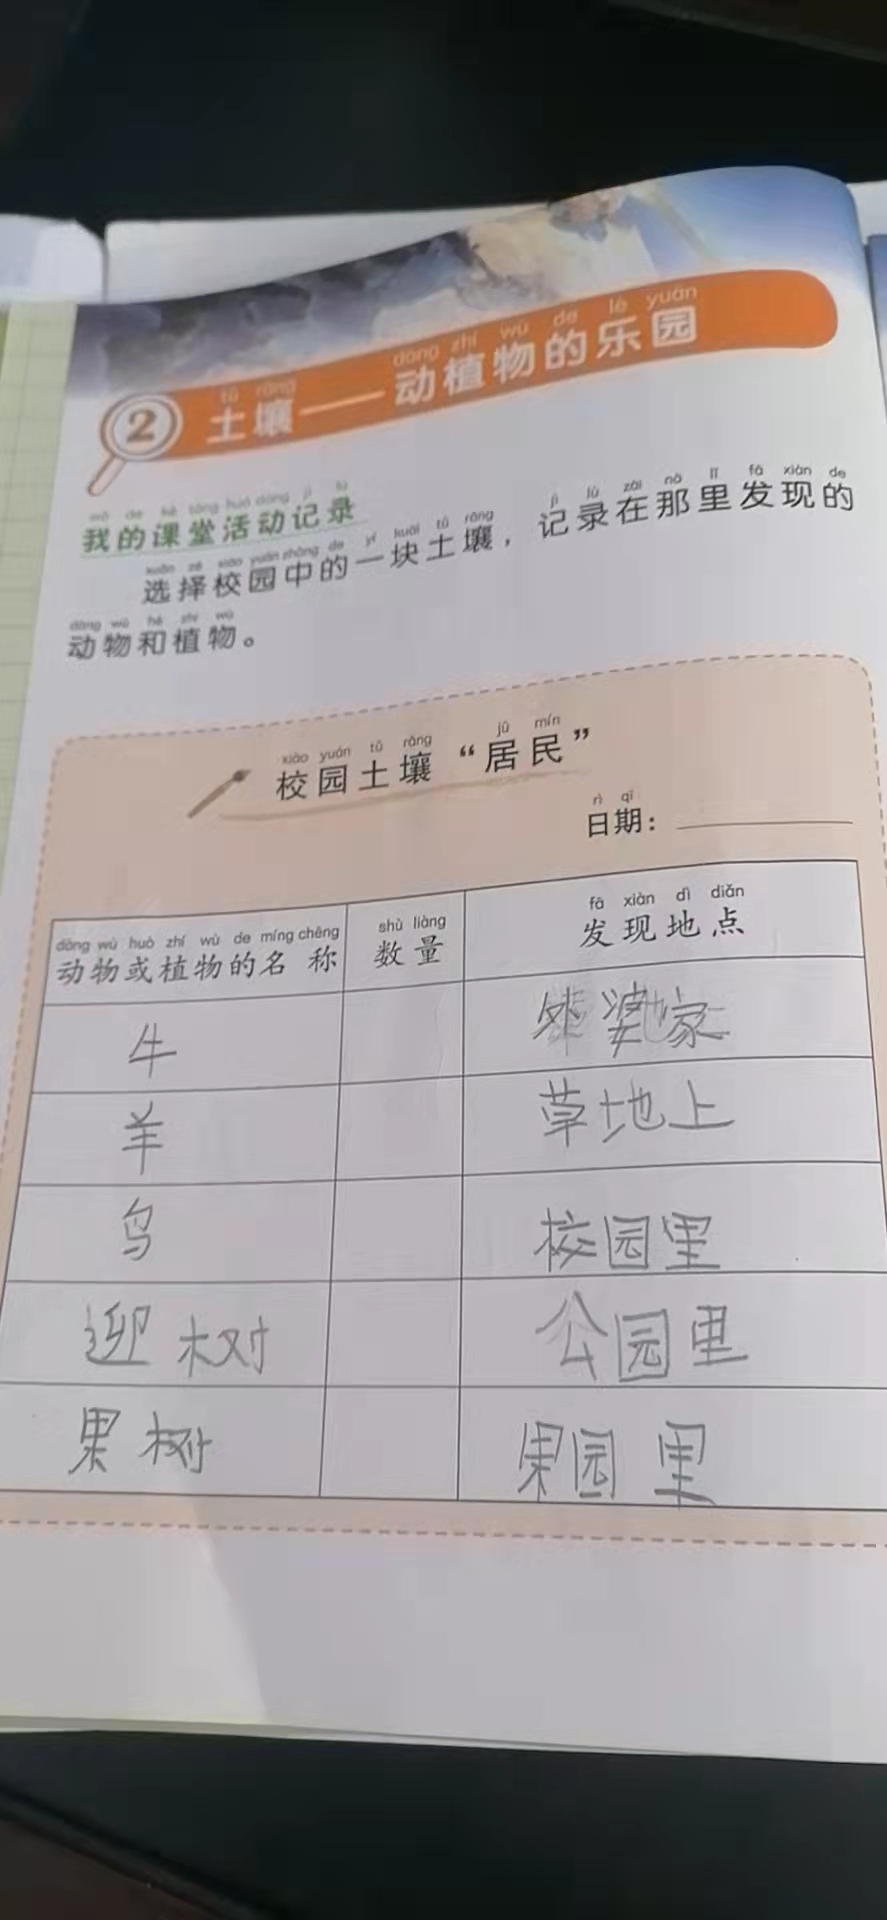 tǔ rǎng dòng zhí wù de lè yuán
2 土壤——动植物的乐园
wǒ de kè táng huó dòng jì lù
我的课堂活动记录
xuǎn zé xiào yuán zhōng de yí kuài tǔ rǎng jì lù zài nà lǐ fā xiàn de
选择校园中的一块土壤，记录在那里发现的
dòng wù hé zhí wù
动物和植物。
xiào yuán tǔ rǎng jū mín
校园土壤“居民”
rì qī
日期：
dòng wù huò zhí wù de míng chēng shù liàng fā xiàn dì diǎn
动物或植物的名称 数量 发现地点
牛 外婆家
羊 草地上
鸟 校园里
迎树 公园里
果树 果园里